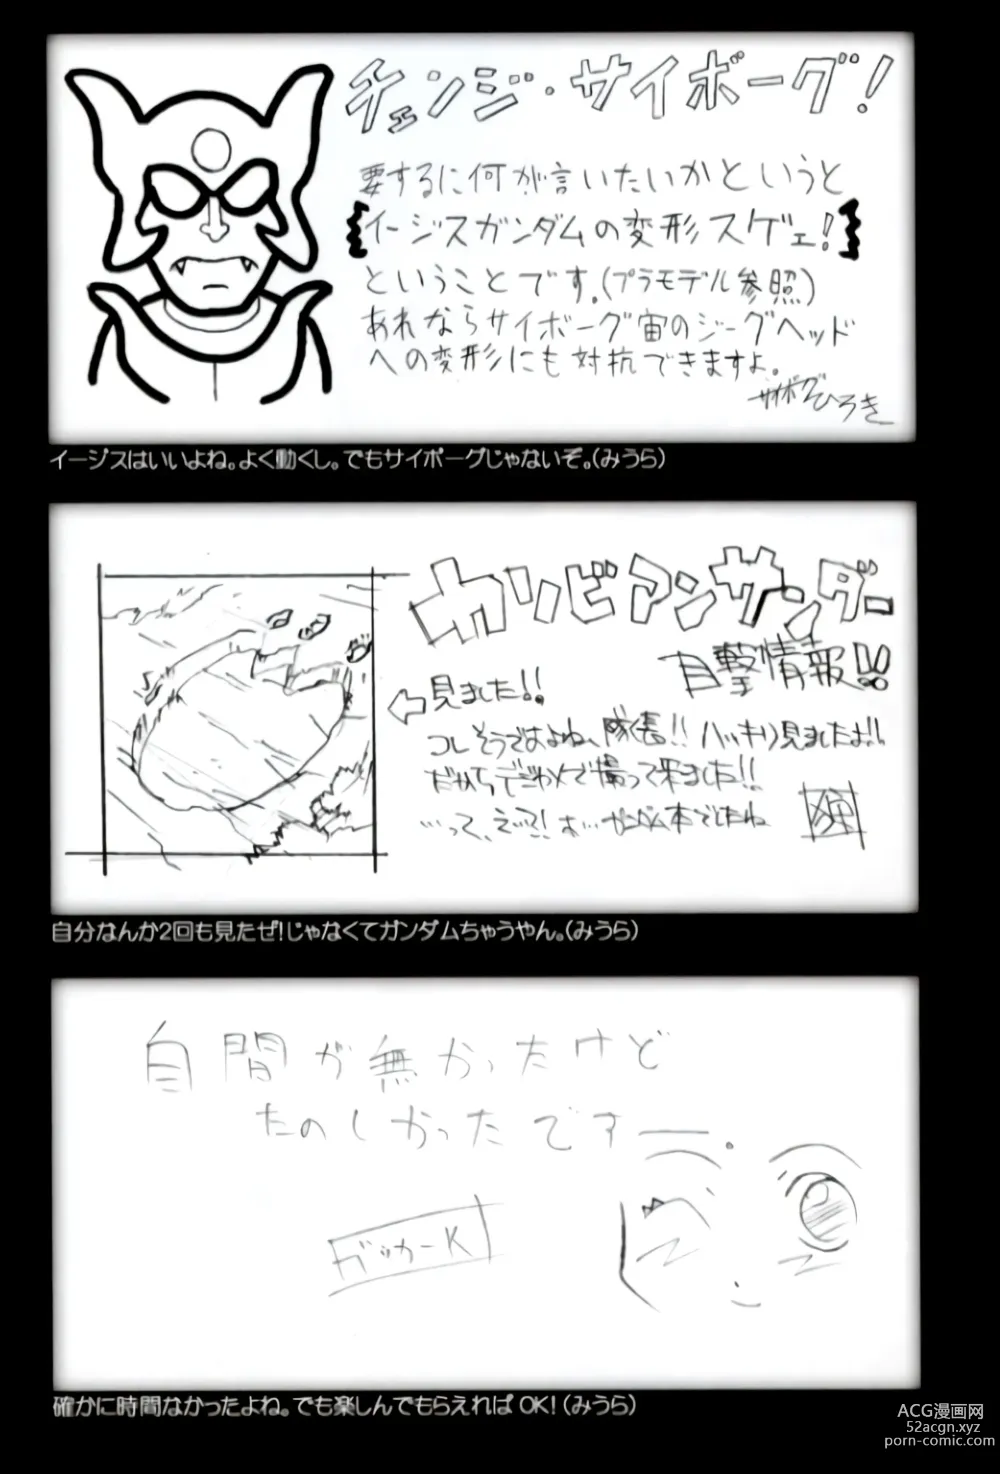 チェンジ・サイボーグ!
要するに何が言いたいかというと
イージスガンダムの変形スゲェ!
ということです.(プラモデル参照)
あれならサイボーグ宙のジーグヘッド
への変形にも対抗できますよ。
サイボーグひろき
イージスはいいよね。よく動くし。でもサイボーグじゃないぞ。(みうら)
カリビアンサンダー
目撃情報!!
見ました!!
コレそうですよね、隊長!! ハッキリ見ましたよ!!
だから、デジカメで撮って来ました!!
…って、えっ!
ガンダム本でしたね
自分なんか2回も見たぜ!じゃなくてガンダムちゃうやん。(みうら)
自間が無かったけど
たのしかったですー.
ガッカーK
確かに時間なかったよね。でも楽しんでもらえれば OK!(みうら)
ACG漫画网
52acgn.xyz
porn-comic.com